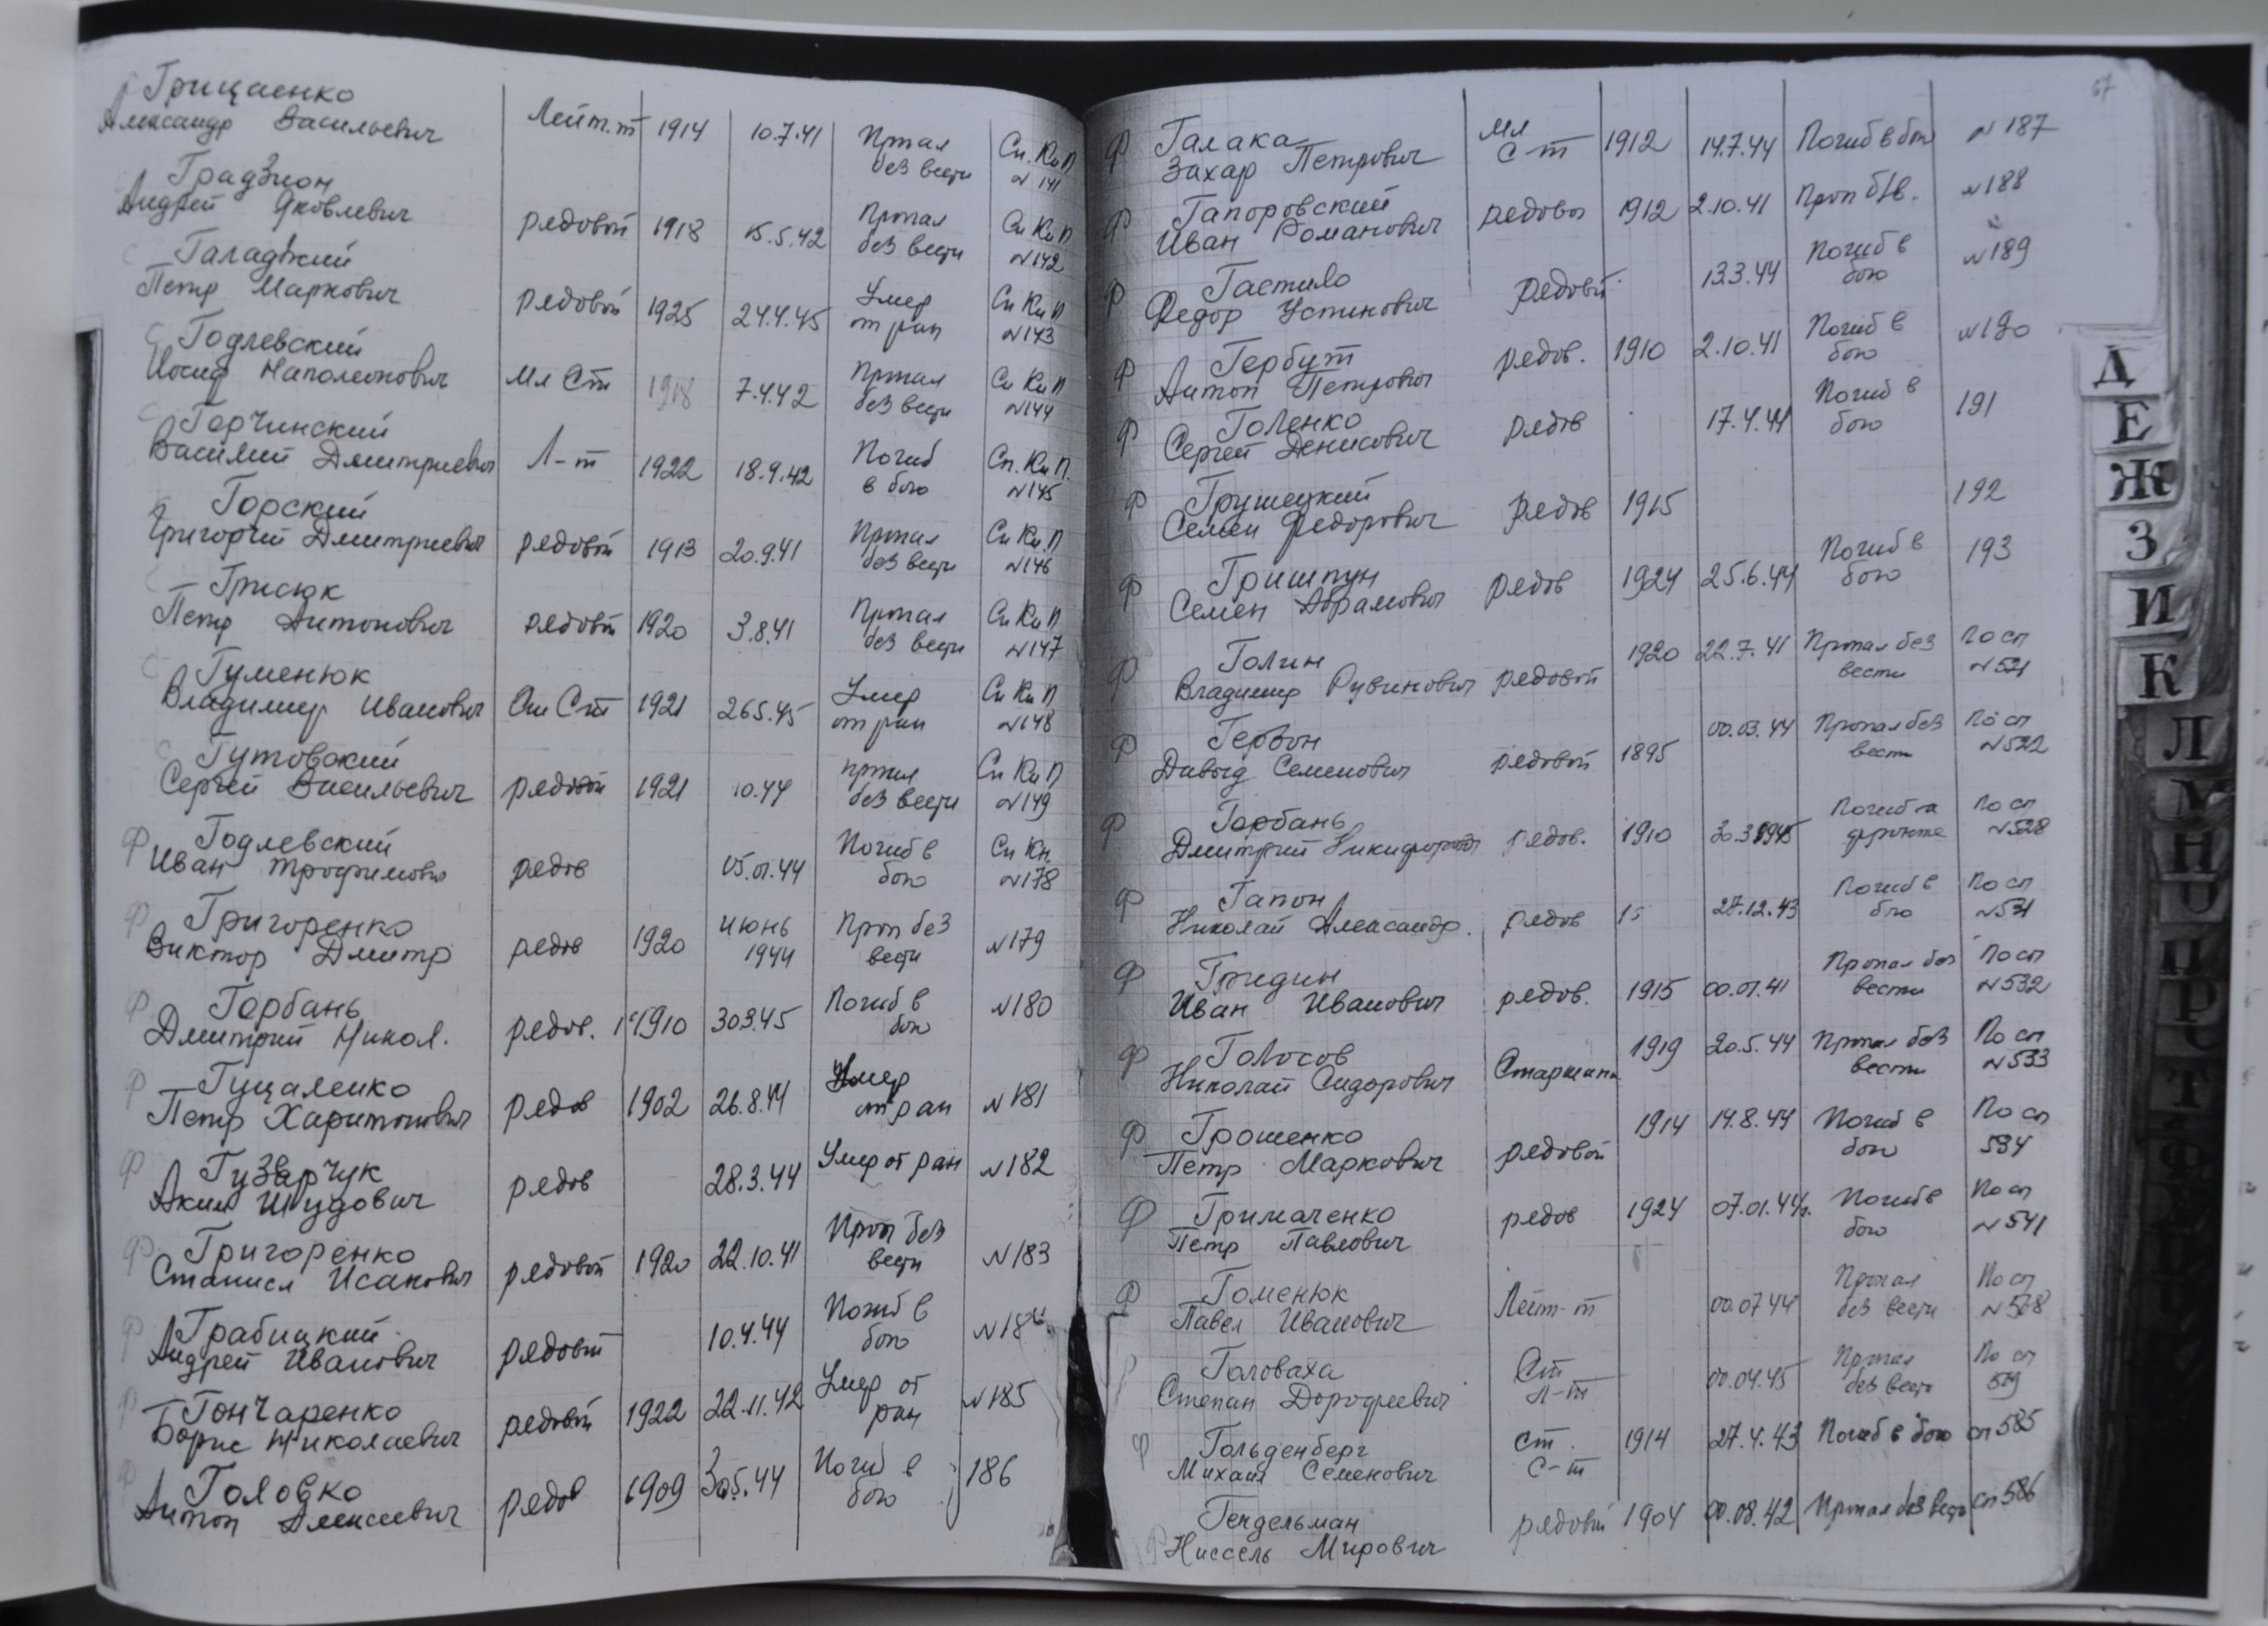 Грицаенко
Александр Васильевич Лейт. т 1914 10.7.41 Пропал без вести Сп. Кн П № 141
Градзион
Андрей Яковлевич рядовой 1918 15.5.42 Пропал без вести Сп Кн П №142
Галаджий
Петр Маркович рядовой 1925 24.4.45 Умер от ран Сп Кн П №143
Годлевский
Иосиф Наполеонович Мл Ст 1918 7.4.42 Пропал без вести Сп Кн П №144
Горчинский
Василий Дмитриевич Л-т 1922 18.9.42 Погиб в бою Сп. Кн П. №145
Горский
Григорий Дмитриевич рядовой 1913 20.9.41 Пропал без вести Сп Кн П №146
Грисюк
Петр Антонович рядовой 1920 3.8.41 Пропал без вести Сп Кн П №147
Гуменюк
Владимир Иванович Ст 1921 26.5.45 Умер от ран Сп Кн П №148
Гутовский
Сергей Васильевич рядовой 1921 10.44 пропал без вести Сп Кн П №149
Ф Годлевский
Иван Трофимович рядов 05.01.44 Погиб в бою Сп Кн. №178
Ф Григоренко
Виктор Дмитр рядов 1920 июнь 1944 Проп без вести №179
Ф Горбань
Дмитрий Никол. рядов. 1910 30.3.45 Погиб в бою №180
Ф Гуцаленко
Петр Харитонович рядов 1902 26.8.44 Умер от ран №181
Ф Гузарчук
Аким рядов 28.3.44 Умер от ран №182
Ф Григоренко
Станисл Исакович рядовой 1920 22.10.41 Проп без вести №183
Ф Грабицкий
Андрей Иванович рядовой 10.4.44 Погиб в бою №184
Ф Гончаренко
Борис Николаевич рядовой 1922 22.11.42 Умер от ран №185
Ф Головко
Антон Алексеевич рядов 1909 30.5.44 Погиб в бою 186
67
Ф Галака
Захар Петрович Мл С-т 1912 14.7.44 Погиб в бою №187
Ф Гапоровский
Иван Романович рядовой 1912 2.10.41 Проп б/в. №188
Ф Гастило
Федор Устинович рядовой 13.3.44 Погиб в бою №189
Ф Гербут
Антон Петрович рядов. 1910 2.10.41 Погиб в бою №190
Ф Голенко
Сергей Денисович рядов 17.4.44 Погиб в бою 191
Ф Грушецкий
Семен Федорович рядов 1915 192
Ф Гришпун
Семен Абрамович рядов 1924 25.6.44 Погиб в бою 193
Ф Голин
Владимир Рувинович рядовой 1920 22.7.41 Пропал без вести По сп №521
Ф Гервон
Давыд Семенович рядовой 1895 00.03.44 Пропал без вести По сп №522
Ф Горбань
Дмитрий рядов. 1910 30.3.1945 Погиб на фронте По сп №528
Ф Гапон
Николай Александр. рядов 15 27.12.43 Погиб в бою По сп №531
Ф Гридин
Иван Иванович рядов. 1915 00.01.41 Пропал без вести По сп №532
Ф Голосов
Николай Сидорович Старшина 1919 20.5.44 Пропал без вести По сп №533
Ф Грошенко
Петр Маркович рядовой 1914 14.8.44 Погиб в бою По сп 534
Ф Гримаченко
Петр Павлович рядов 1924 07.01.44г. Погиб в бою По сп №541
Ф Гоменюк
Павел Иванович Лейт-т 00.07 44 Пропал без вести По сп №568
Головаха
Степан Дорофеевич Ст Л-т 00.04.45 Пропал без вести По сп
Ф Гольденберг
Михаил Семенович Ст. С-т 1914 27.4.43 Погиб в бою сп 585
Гендельман
Ниссель Мирович рядовой 1904 00.08.42 Пропал без вести сп 586
Д
Е
Ж
З
И
К
Л
М
Н
О
П
Р
С
Т
Ф